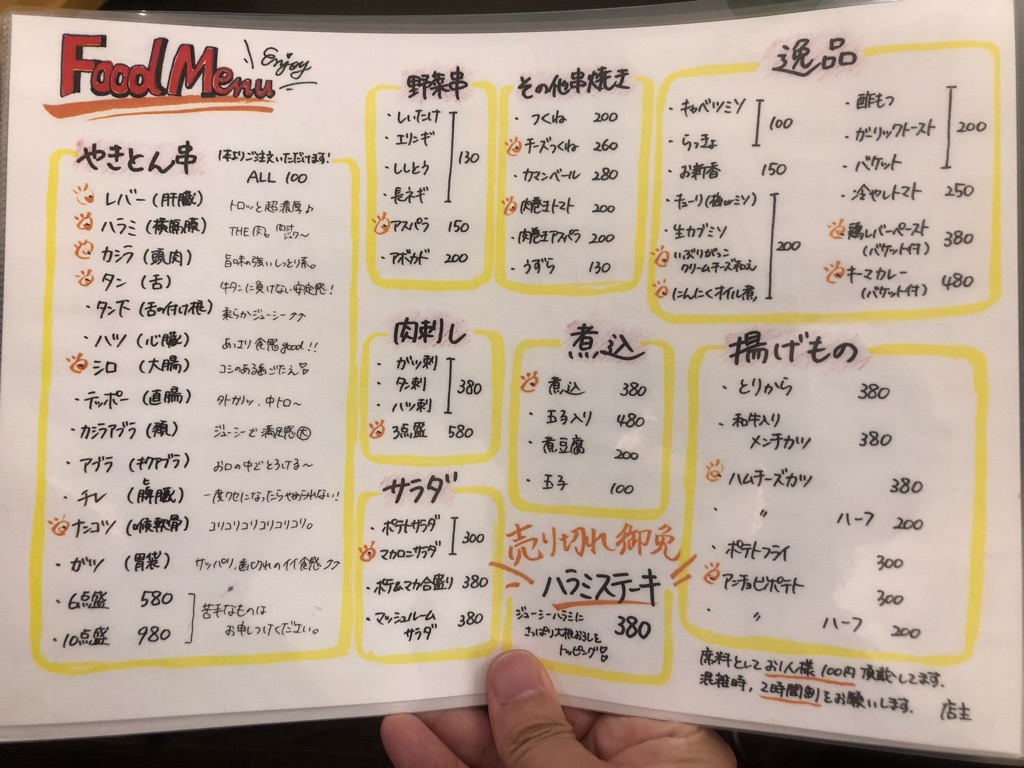 Food Menu
Enjoy
やきとん串
1本よりご注文いただけます!
ALL 100
レバー(肝臓) トロッと超濃厚♪
ハラミ(横隔膜) THE肉。
カシラ(頭肉) 旨味の強いしっとり系。
タン(舌) 牛タンに負けない安定感!
・タン下(舌の付け根) 柔らかジューシー⤴⤴
・ハツ(心臓) あっさり食感good!!
シロ(大腸) コシのある歯ごたえ
・テッポー(直腸) 中トロ〜
・カシラアブラ(頬) ジューシーで満足感大
・アブラ(キクアブラ) お口の中でとろける〜
・チレ(脾臓) 一度クセになったらやめられない!
ナンコツ(喉軟骨) コリコリコリコリコリコリ。
・ガツ(胃袋) サッパリ、歯切れのイイ食感⤴⤴
・6点盛 580
・10点盛 980
苦手なものは
お申しつけください。
野菜串
・しいたけ
・エリンギ
・ししとう
・長ネギ
130
アスパラ 150
・アボカド 200
その他串焼き
・つくね 200
チーズつくね 260
・カマンベール 280
肉巻きトマト 200
・肉巻きアスパラ 200
・うずら 130
逸品
・キャベツミソ
・らっきょ
100
・お新香 150
・キューリ(梅orミソ)
・生カブミソ
いぶりがっこ
クリームチーズ和え
にんにくオイル煮
200
・酢もつ
・ガーリックトースト
・バケット
200
・冷やしトマト 250
鶏レバーペースト
(バケット付) 380
キーマカレー
(バケット付) 480
肉刺し
・ガツ刺
・タン刺
・ハツ刺
380
3点盛 580
サラダ
・ポテトサラダ
マカロニサラダ
300
・ポテ&マカ合盛り 380
・マッシュルーム
サラダ 380
煮込
煮込 380
・玉子入り 480
・煮豆腐 200
・玉子 100
売り切れ御免
ハラミステーキ
ジューシーハラミに
さっぱり大根おろしを
トッピング
380
揚げもの
・とりから 380
・和牛入り
メンチカツ 380
ハムチーズカツ 380
・〃 ハーフ 200
・ポテトフライ 300
アンチョビポテト 300
・〃 ハーフ 200
席料としてお1人様100円頂戴してます。
混雑時、2時間制をお願いします。 店主